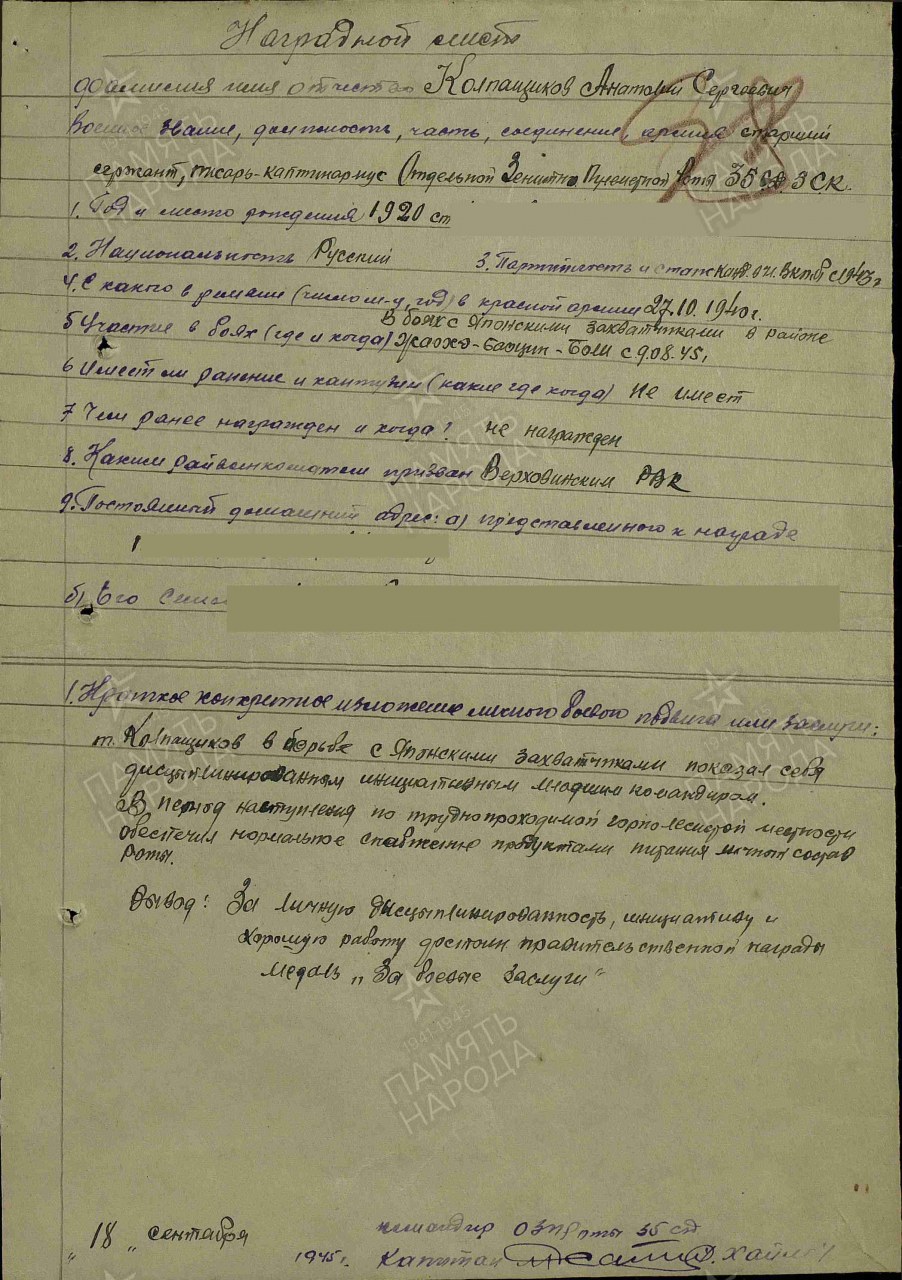 Наградной лист
Фамилия имя отчество Колпащиков Анатолий Сергеевич
Военное звание, должность, часть, соединение, армия старший
сержант, писарь-каптинармус Отдельной Зенитно Пулеметной Роты 35 сд 3 СК.
1. Год и место рождения 1920 ст
2. Национальность Русский 3. Партийность и стаж Канд. в чл. ВКПб с 1943 г
4. С какого времени (число м-ц, год) в красной армии 27.10.1940 г.
5 Участие в боях (где и когда) В боях с Японскими захватчиками в районе
Жаохэ-Баоцин-Боли с 9.08.45 г
6 Имеет ли ранение и контузии (какие где когда) Не имеет
7 Чем ранее награжден и когда? не награжден
8. Каким райвоенкоматом призван Верховинским РВК
9. Постоянный домашний адрес: а) представленного к награде
б) Его
1. Краткое конкретное изложение личного боевого подвига или заслуги:
т. Колпащиков в борьбе с Японскими захватчиками показал себя
дисцыплинированным инициативным младшим командиром.
В период наступления по труднопроходимой горнолесистой местности
обеспечил нормальное снабжение продуктами питания личный состав
Роты.
Вывод: За личную дисцыплинированность, инициативу и
хорошую работу достоин правительственной награды
Медаль „За боевые заслуги"
„18„ сентября 1945 г.
командир ОЗПроты 35 сд
Капитан
ПАМЯТЬ НАРОДА
1941-1945